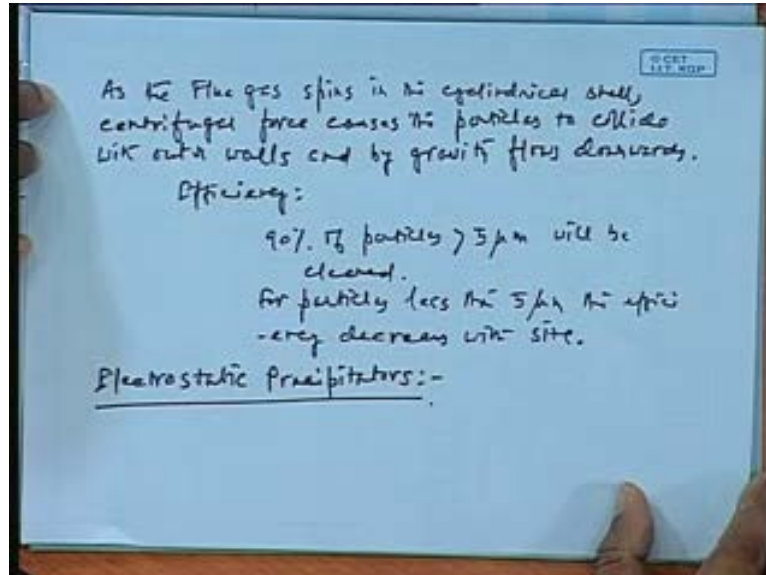 © CET
I.I.T. KGP
As the Flue gas spins in the cylindrical shell,
centrifugal force causes the particles to collide
with outer walls and by gravity flows downwards.
Efficiency:
90% of particles > 5 μm will be
cleaned.
For particles less than 5 μm the effici
-ency decreases with size.
Electrostatic Precipitators:-